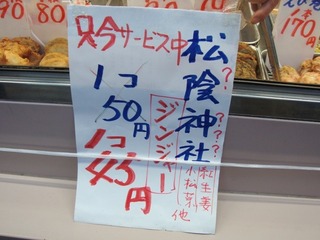 只今サービス中
松陰神社
???????
ジンジャー
紅生姜
小松菜
他
1コ
50円
1コ
45円
170円